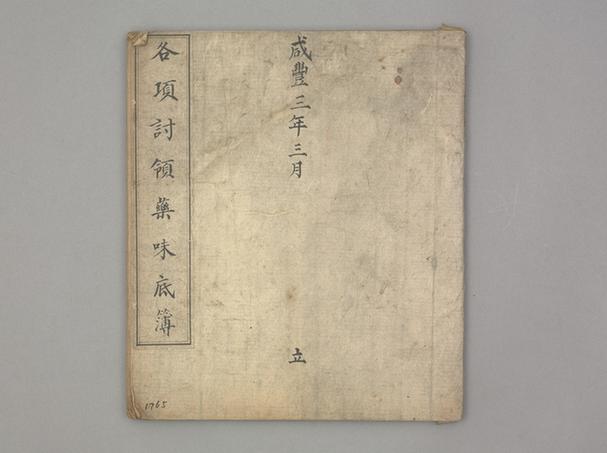 咸豐三年三月
立
各項討領藥味底簿
1765